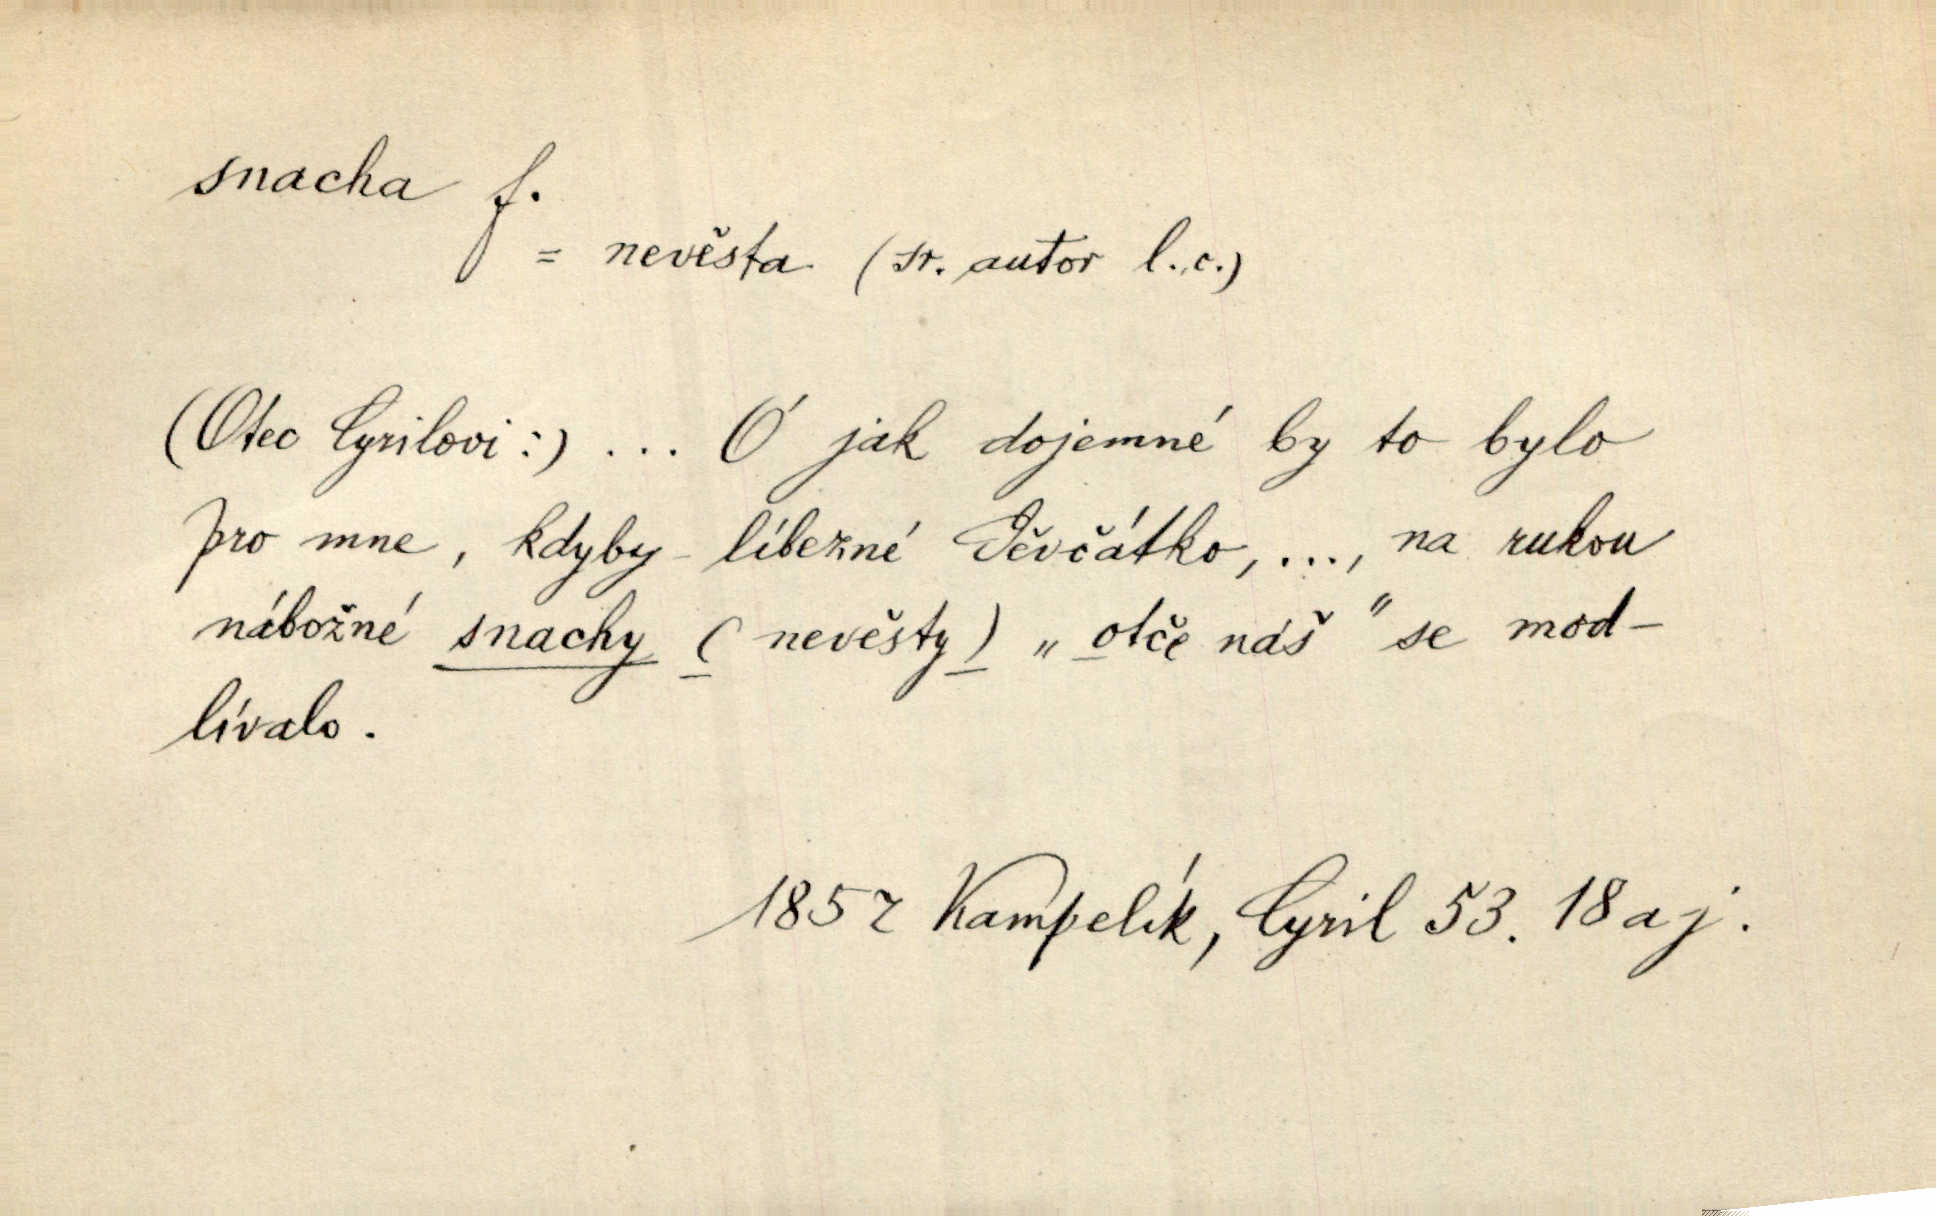 snacha f.
= nevěsta (sr. autor l. c.)
(Otec Cyrilovi:) ... Ó jak dojemné by to bylo
pro mne, kdyby líbezné Děvčátko, ..., na rukou
nábožné snachy (nevěsty) „otče náš" se mod-
lívalo.
1852 Kampelík, Cyril 53. 18 a j.